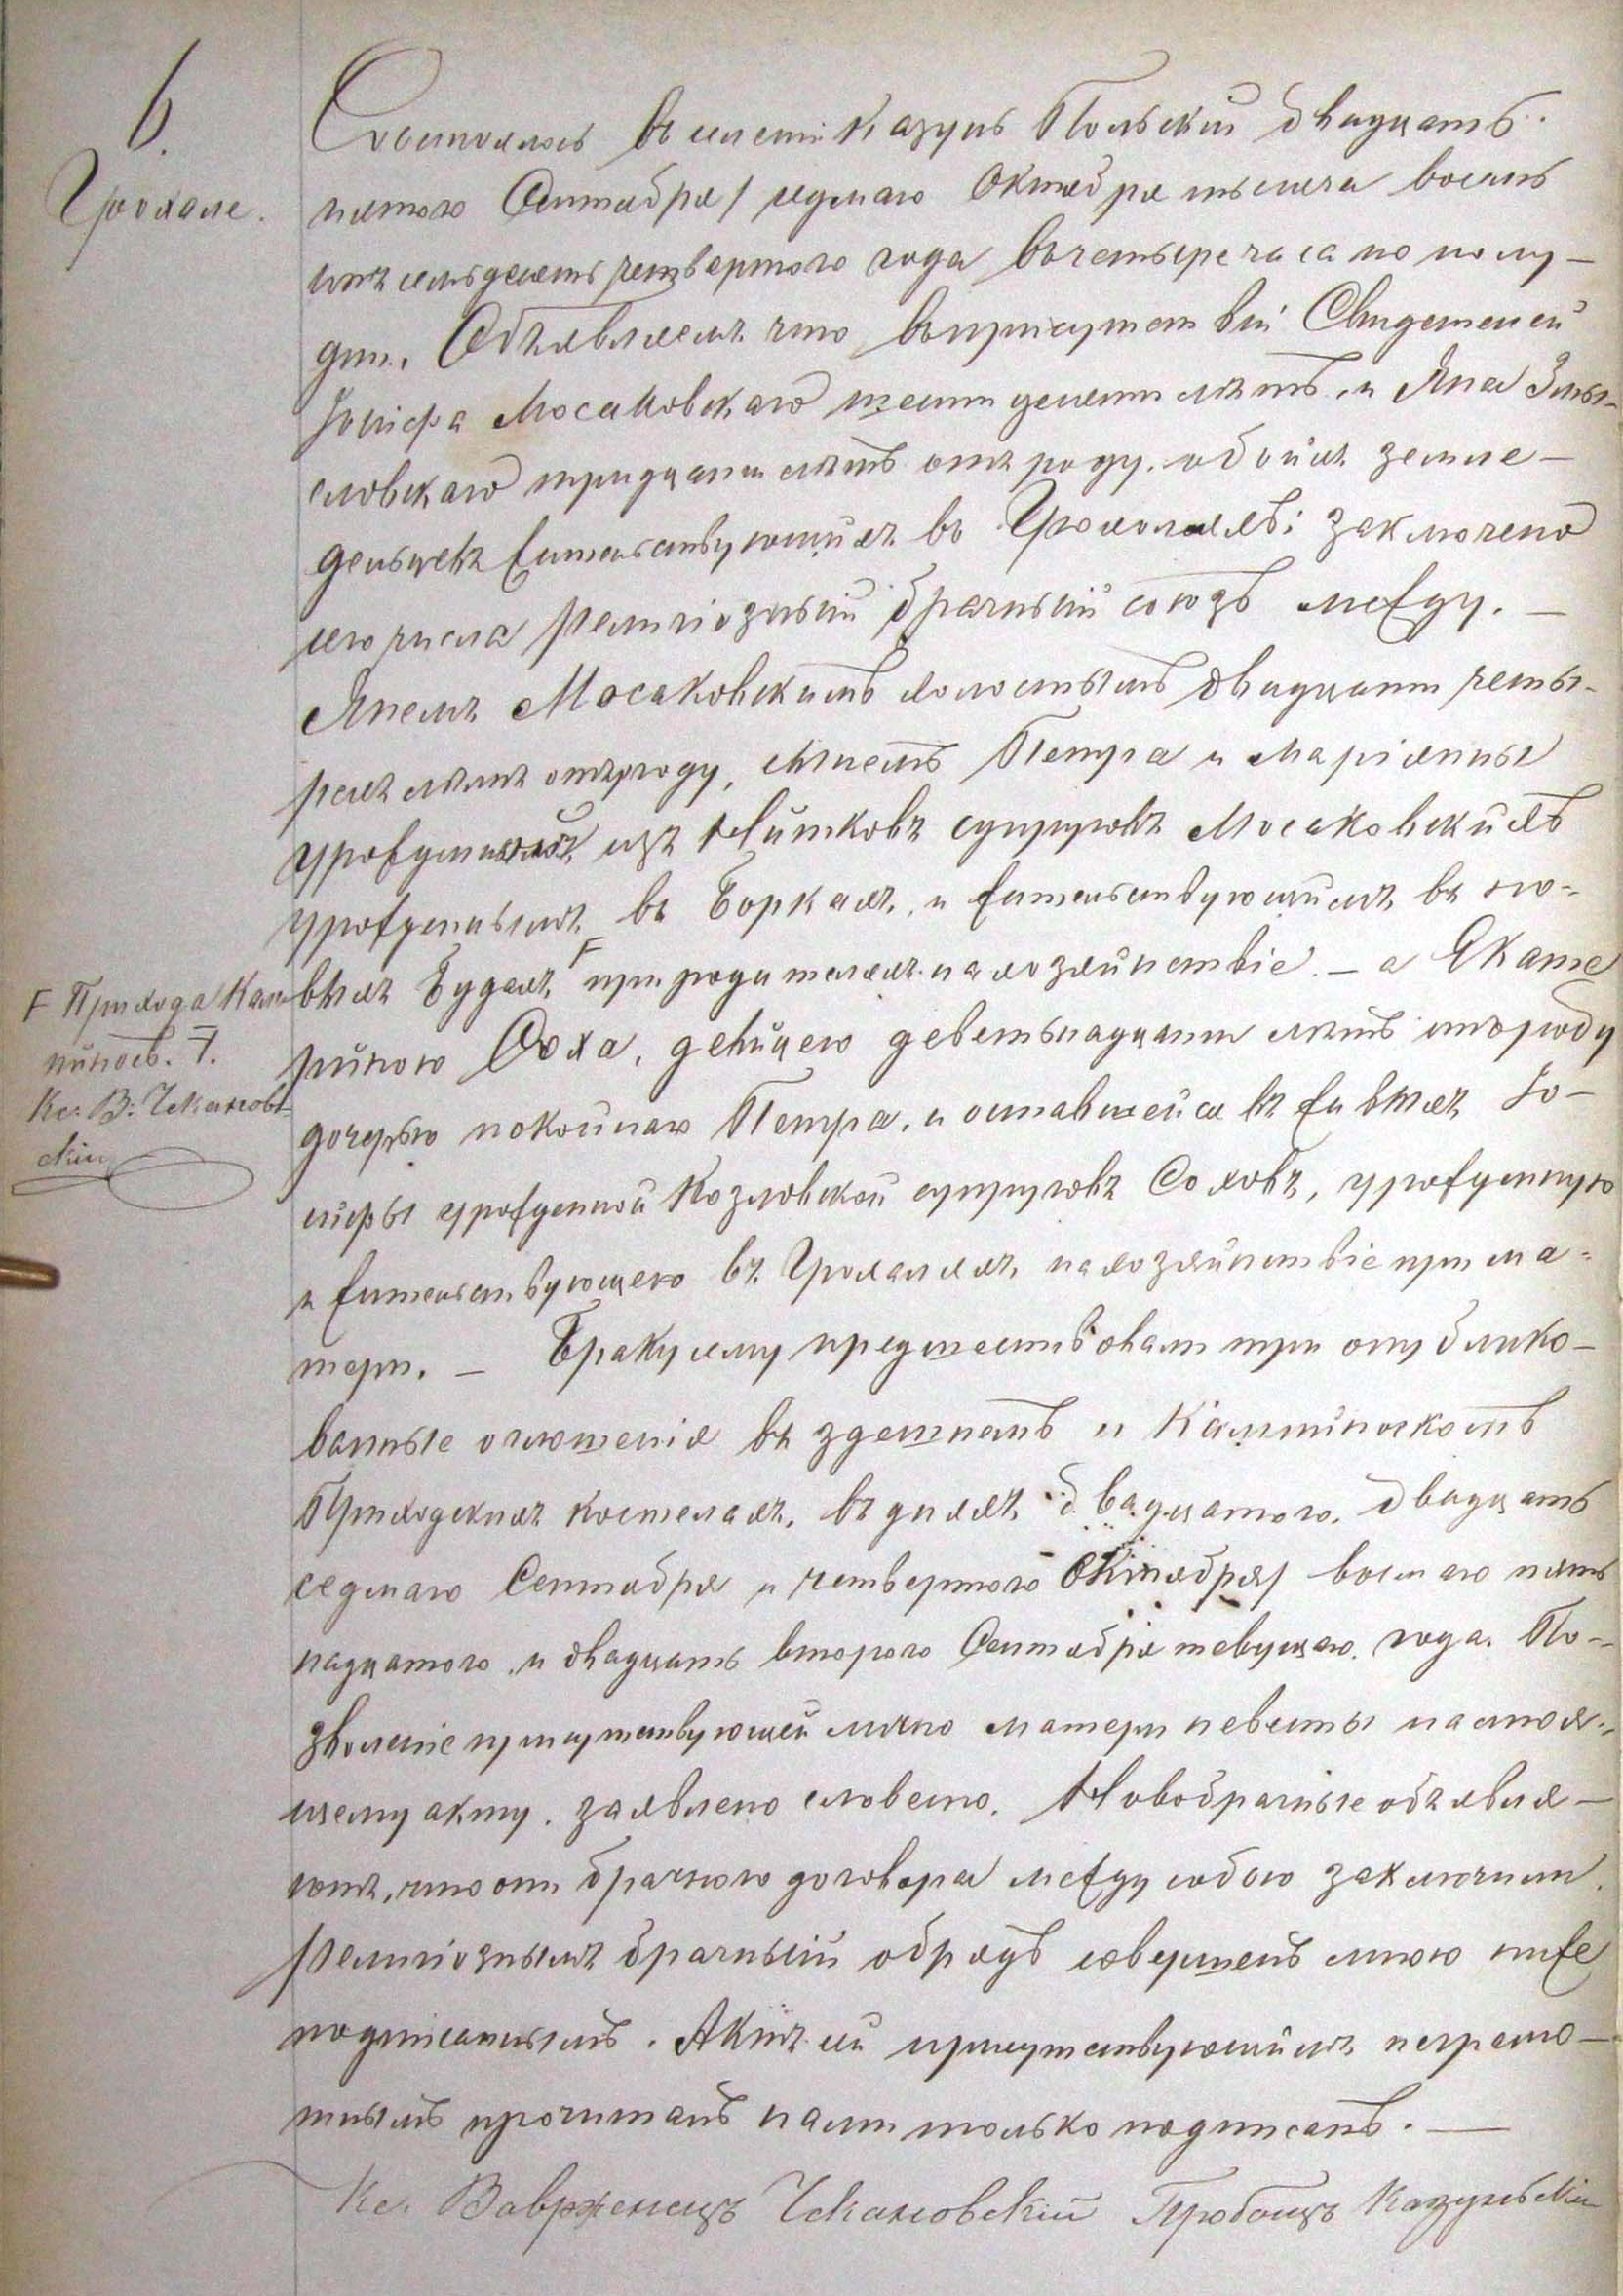 6.
Грохале.
Состоялось въ селеніи Казунь Польскій двадцать
пятого Сентября / седмаго Октября тысяча восемь
сотъ семьдесятъ четвертого года въ четыре часа по полу-
дни. Объявляемъ что въ присутствіи Свидетелей
Іосифа Мосаковскаго шестидесяти лѣтъ, и Яна
тридцати лѣтъ отъ роду, обоихъ земле-
дельцевъ жительствующихъ въ Грохоляхъ: заключено
сего числа религіозный брачный союзъ между. —
Яномъ Мосаковскимъ холостымъ двадцати четы-
рехъ лѣтъ отъ роду, сыномъ Петра и Маріянны
урожденной изъ супруговъ Мосаковскихъ
урожденнымъ въ Боркахъ, и жительствующимъ въ но-
выхъ Будахъ F при родителяхъ на хозяйствіе. — а Екате
риною Соха, девицею деветьнадцати лѣтъ отъ роду
дочерью покойнаго Петра, и оставшейся въ живыхъ Іо-
зифы урожденной Козловской супруговъ Соховъ, урожденную
и жительствующею въ Грохаляхъ, на хозяйствіе при ма-
тери. — Браку сему предшествовали три опублико-
ванные оглошенія въ здешнемъ и Кампиноскомъ
Приходскихъ костелахъ, въ дняхъ двадцатого, двадцать
седмаго Сентября и четвертого Октября / восмаго пять
надцатого, и двадцать второго Сентября текущаго года. По-
зволеніе присутствующей лично матери невесты настоя-
щему акту, заявлено словесно. Новобрачные объявля-
ютъ, что они брачного договора между собою заключили.
Религіознымъ брачный обрядъ совершенъ мною ниже
подписаннымъ. Актъ сей присутствующимъ неграмо-
тнымъ прочитанъ нами только подписанъ. —
Кс. Вавржинецъ Чекановскій Пробощъ Казуньскій
F Прихода Кам
пиносъ. F.
Кс. В. Чекановс
кій